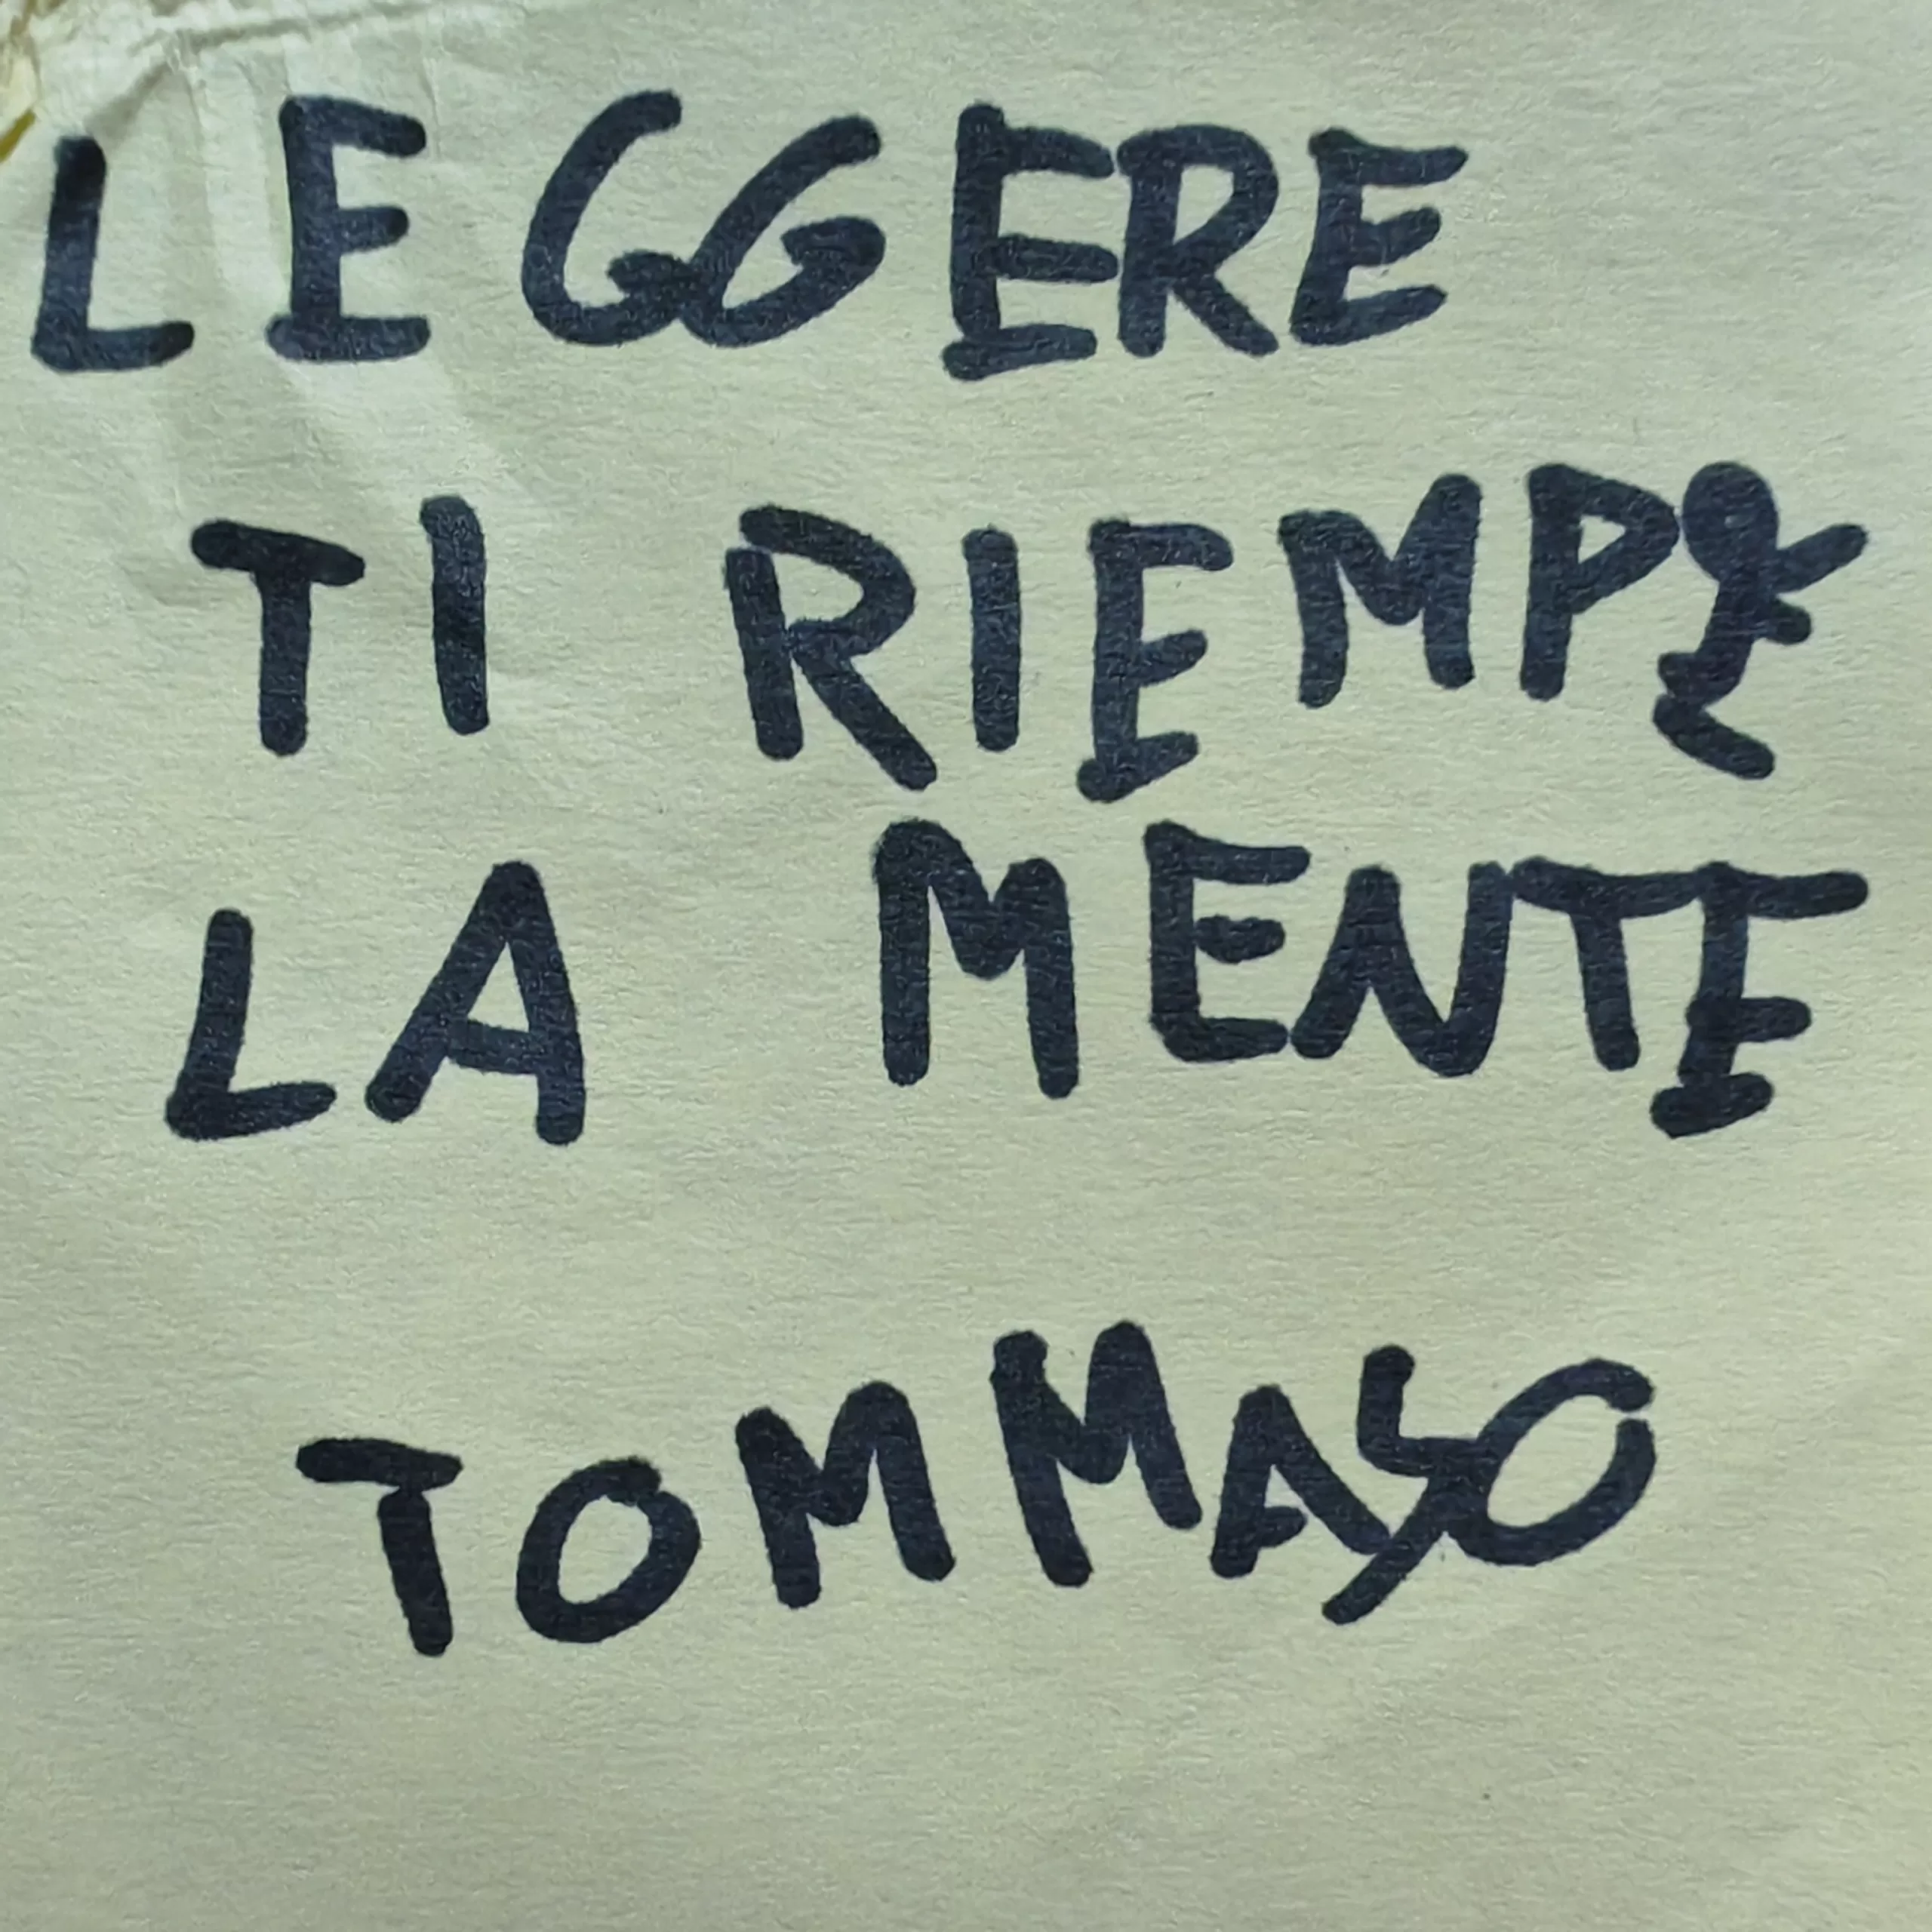 LEGGERE
TI RIEMPE
LA MENTE
TOMMASO